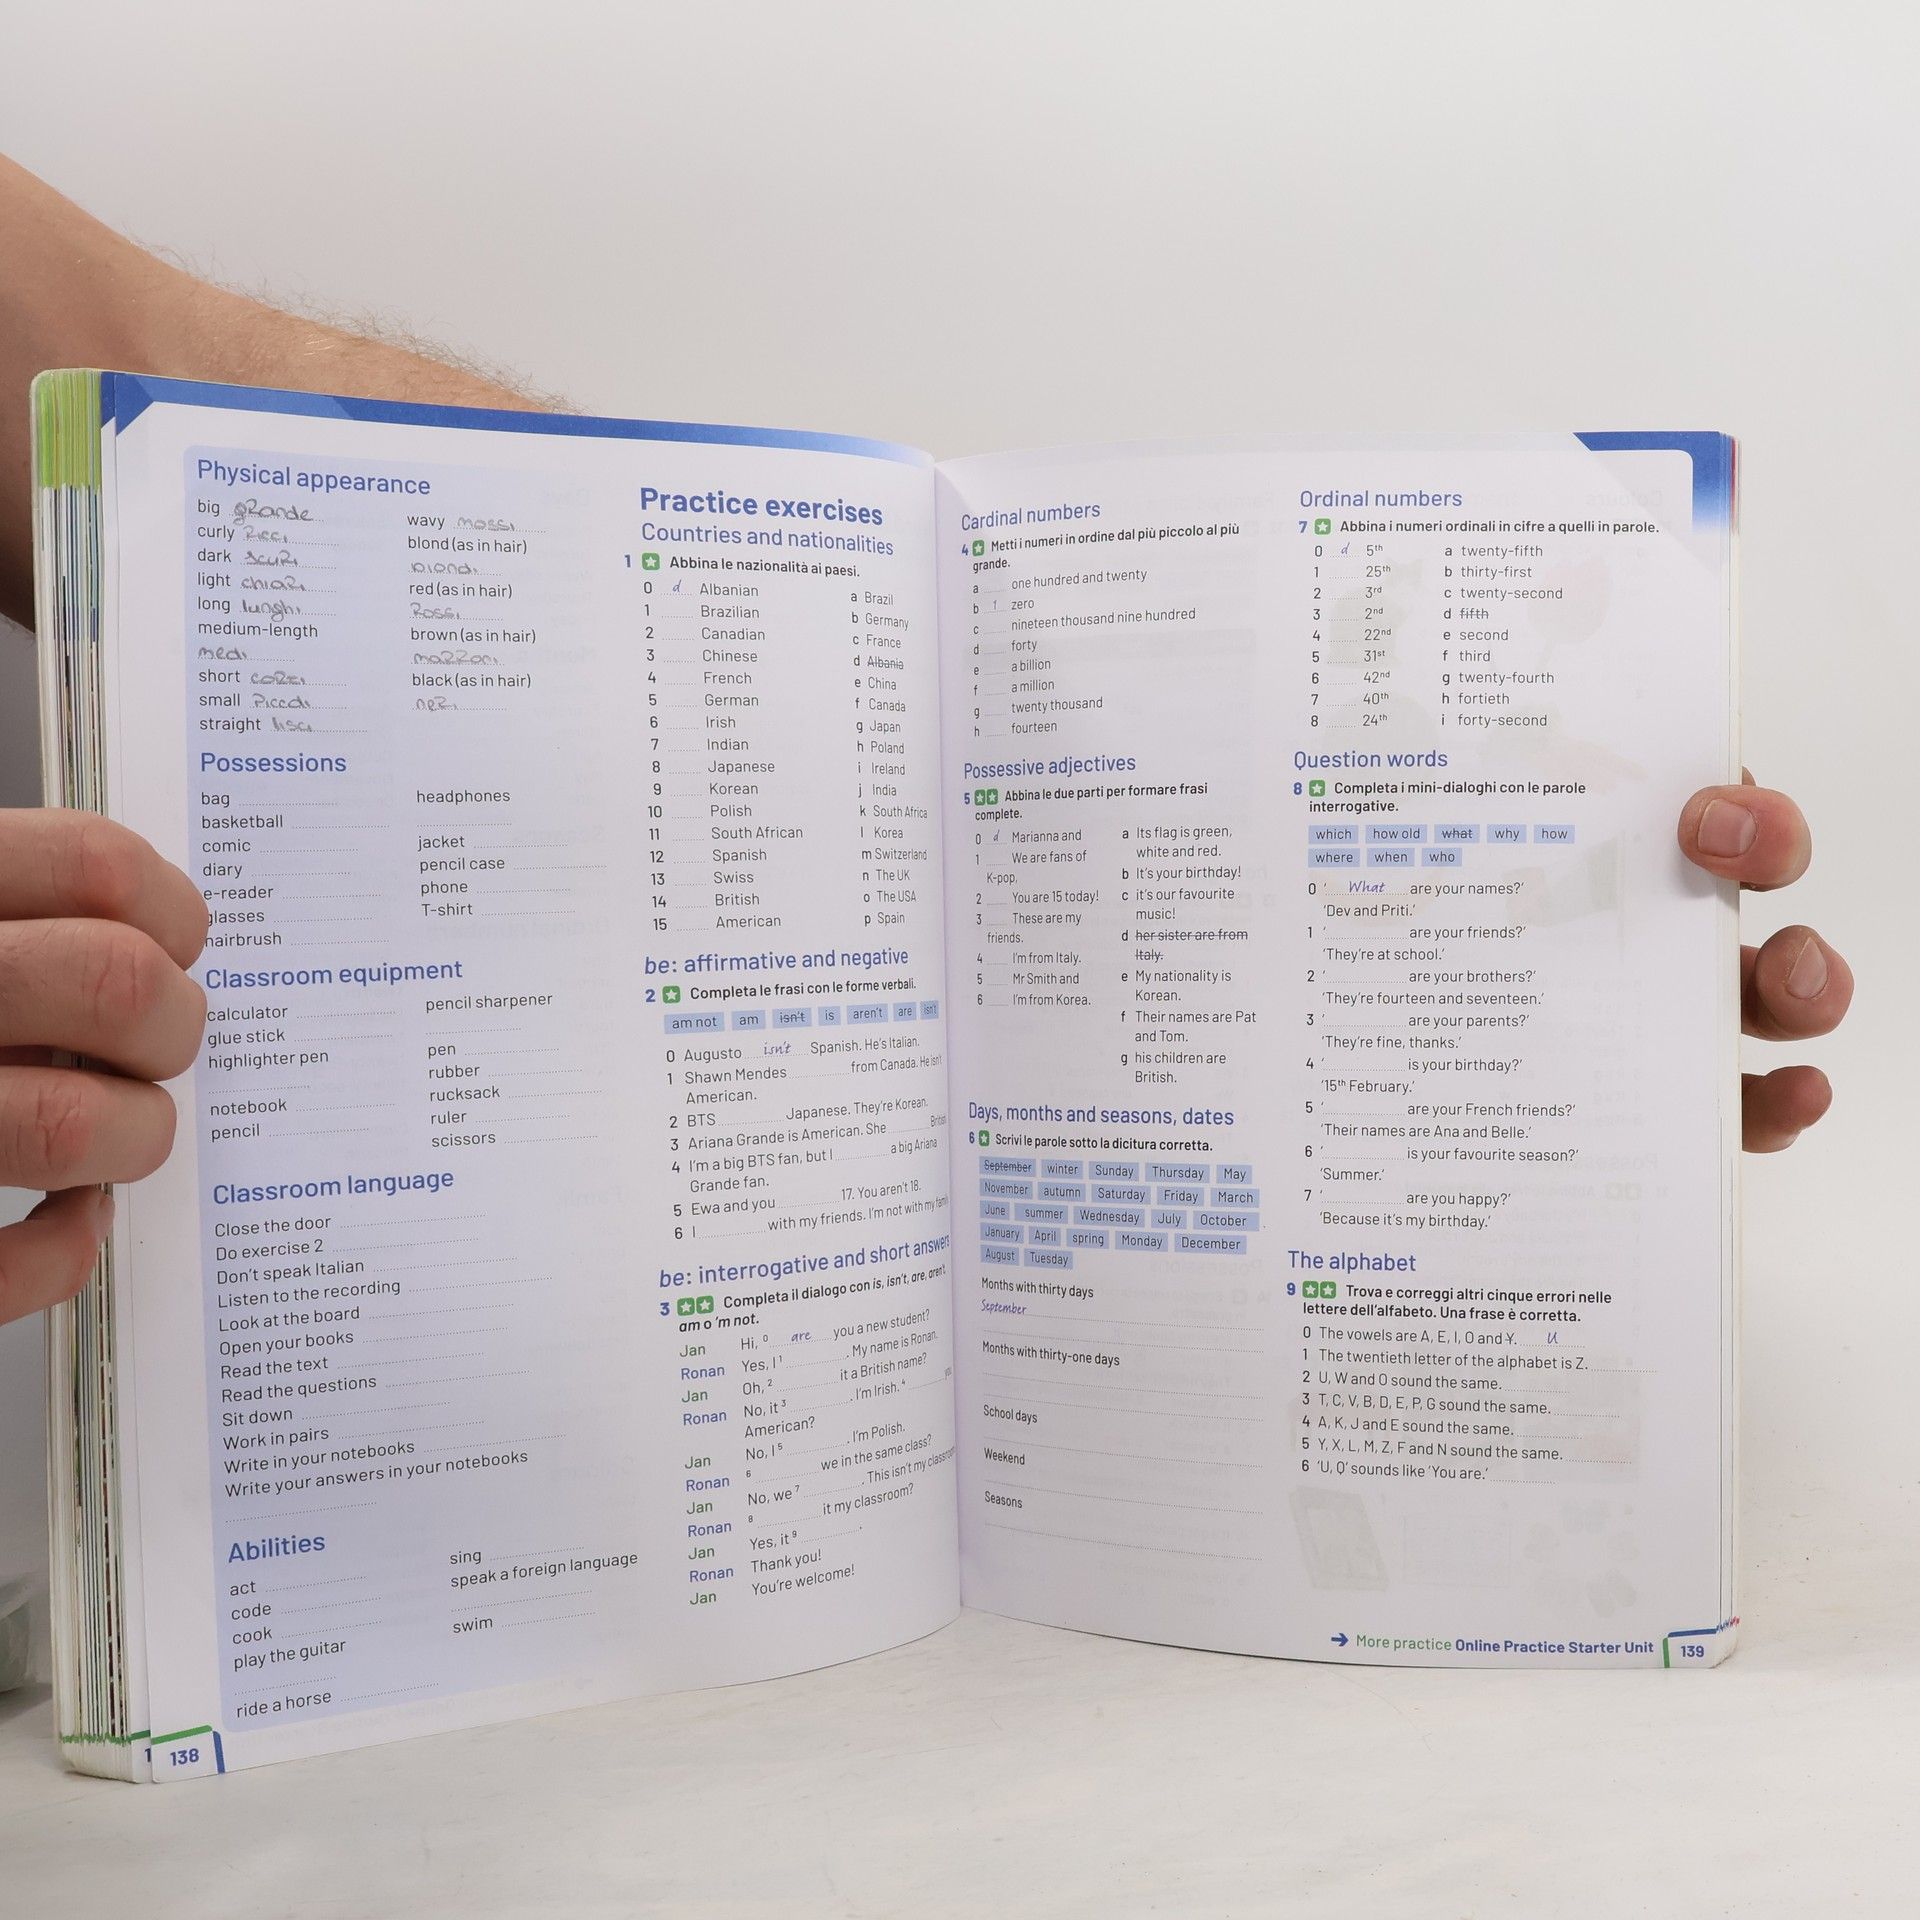 Physical appearance
big grande
curly Ricci
dark scuri
light chiari
long lunghi
medium-length
medi
short corti
small Piccoli
straight lisci
wavy mossi
blond (as in hair)
biondi
red (as in hair)
Rossi
brown (as in hair)
marroni
black (as in hair)
neri
Possessions
bag
basketball
comic
diary
e-reader
glasses
hairbrush
headphones
jacket
pencil case
phone
T-shirt
Classroom equipment
calculator
glue stick
highlighter pen
notebook
pencil
pencil sharpener
pen
rubber
rucksack
ruler
scissors
Classroom language
Close the door
Do exercise 2
Don't speak Italian
Listen to the recording
Look at the board
Open your books
Read the text
Read the questions
Sit down
Work in pairs
Write in your notebooks
Write your answers in your notebooks
Abilities
act
code
cook
play the guitar
ride a horse
sing
speak a foreign language
swim
138
Practice exercises
Countries and nationalities
1 Abbina le nazionalità ai paesi.
0 d Albanian
1 Brazilian
2 Canadian
3 Chinese
4 French
5 German
6 Irish
7 Indian
8 Japanese
9 Korean
10 Polish
11 South African
12 Spanish
13 Swiss
14 British
15 American
a Brazil
b Germany
c France
d Albania
e China
f Canada
g Japan
h Poland
i Ireland
j India
k South Africa
l Korea
m Switzerland
n The UK
o The USA
p Spain
be: affirmative and negative
2 Completa le frasi con le forme verbali.
am not am isn't is aren't are isn't
0 Augusto isn't Spanish. He's Italian.
1 Shawn Mendes from Canada. He isn't
American.
2 BTS Japanese. They're Korean.
3 Ariana Grande is American. She British
4 I'm a big BTS fan, but I a big Ariana
Grande fan.
5 Ewa and you 17. You aren't 18.
6 I with my friends. I'm not with my family
be: interrogative and short answers
3 Completa il dialogo con is, isn't, are, aren't
am o 'm not.
Jan Hi, 0 are you a new student?
Ronan Yes, I 1 . My name is Ronan.
Jan Oh, 2 it a British name?
Ronan No, it 3 . I'm Irish. 4 you
American?
Jan No, I 5 . I'm Polish.
Ronan 6 we in the same class?
Jan No, we 7 . This isn't my classroom
Ronan 8 it my classroom?
Jan Yes, it 9 .
Ronan Thank you!
Jan You're welcome!
Cardinal numbers
4 Metti i numeri in ordine dal più piccolo al più
grande.
a one hundred and twenty
b 1 zero
c nineteen thousand nine hundred
d forty
e a billion
f a million
g twenty thousand
h fourteen
Possessive adjectives
5 Abbina le due parti per formare frasi
complete.
0 d Marianna and
1 We are fans of
K-pop,
2 You are 15 today!
3 These are my
friends.
4 I'm from Italy.
5 Mr Smith and
6 I'm from Korea.
a Its flag is green,
white and red.
b It's your birthday!
c it's our favourite
music!
d her sister are from
Italy.
e My nationality is
Korean.
f Their names are Pat
and Tom.
g his children are
British.
Days, months and seasons, dates
6 Scrivi le parole sotto la dicitura corretta.
September winter Sunday Thursday May
November autumn Saturday Friday March
June summer Wednesday July October
January April spring Monday December
August Tuesday
Months with thirty days
September
Months with thirty-one days
School days
Weekend
Seasons
Ordinal numbers
7 Abbina i numeri ordinali in cifre a quelli in parole.
0 d 5th
1 25th
2 3rd
3 2nd
4 22nd
5 31st
6 42nd
7 40th
8 24th
a twenty-fifth
b thirty-first
c twenty-second
d fifth
e second
f third
g twenty-fourth
h fortieth
i forty-second
Question words
8 Completa i mini-dialoghi con le parole
interrogative.
which how old what why how
where when who
0 'What are your names?'
'Dev and Priti.'
1 ' are your friends?'
'They're at school.'
2 ' are your brothers?'
'They're fourteen and seventeen.'
3 ' are your parents?'
'They're fine, thanks.'
4 ' is your birthday?'
'15th February.'
5 ' are your French friends?'
'Their names are Ana and Belle.'
6 ' is your favourite season?'
'Summer.'
7 ' are you happy?'
'Because it's my birthday.'
The alphabet
9 Trova e correggi altri cinque errori nelle
lettere dell'alfabeto. Una frase è corretta.
0 The vowels are A, E, I, O and Y. U
1 The twentieth letter of the alphabet is Z.
2 U, W and O sound the same.
3 T, C, V, B, D, E, P, G sound the same.
4 A, K, J and E sound the same.
5 Y, X, L, M, Z, F and N sound the same.
6 'U, Q' sounds like 'You are.'
More practice Online Practice Starter Unit 139